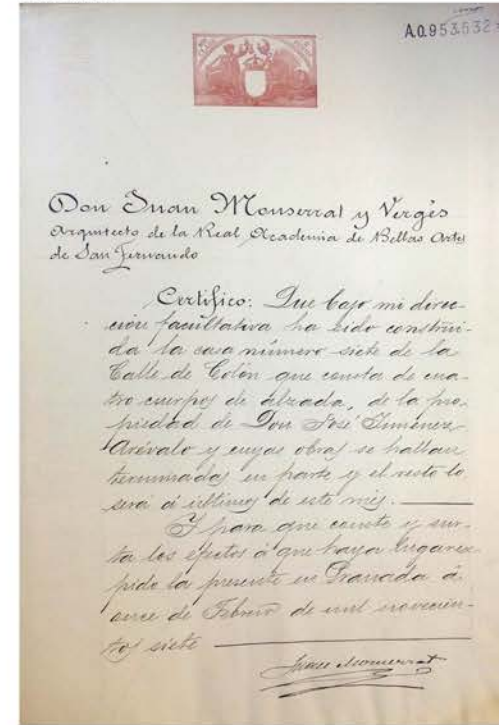 A.0.953.532
Don Juan Monserrat y Vergés
Arquitecto de la Real Academia de Bellas Artes
de San Fernando
Certifico: Que bajo mi direc-
ción facultativa ha sido construi-
da la casa número siete de la
Calle de Colón que consta de cua-
tro cuerpos de alzada, de la pro-
piedad de Don José Jiménez
Arévalo y cuyas obras se hallan
terminadas en parte y el resto lo
será á ultimos de este mes.
Y para que conste y sur-
ta los efectos á que haya lugar ex-
pido la presente en Granada á
once de Febrero de mil novecien-
tos siete
Juan Monserrat